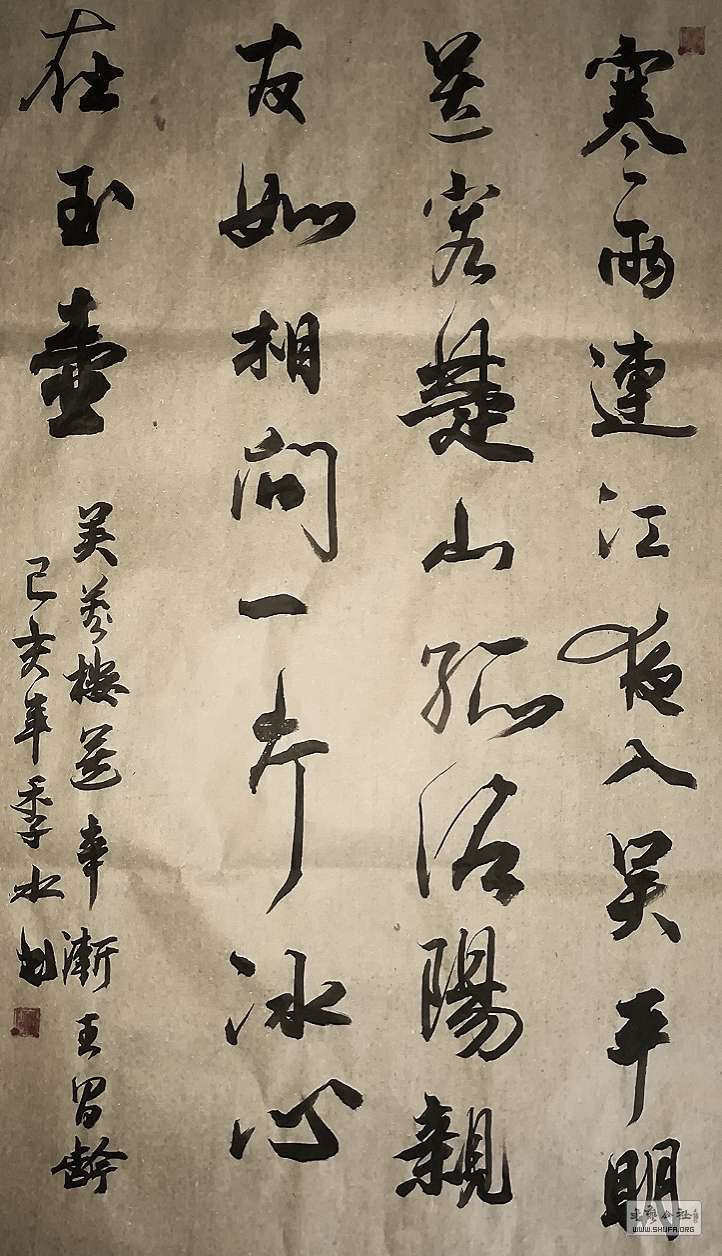 寒雨連江夜入吴平明
送客楚山孤洛陽親
友如相問一片冰心
在玉壺
芙蓉樓送辛漸王昌齡
己亥年季水
WWW.SHUFA.ORG